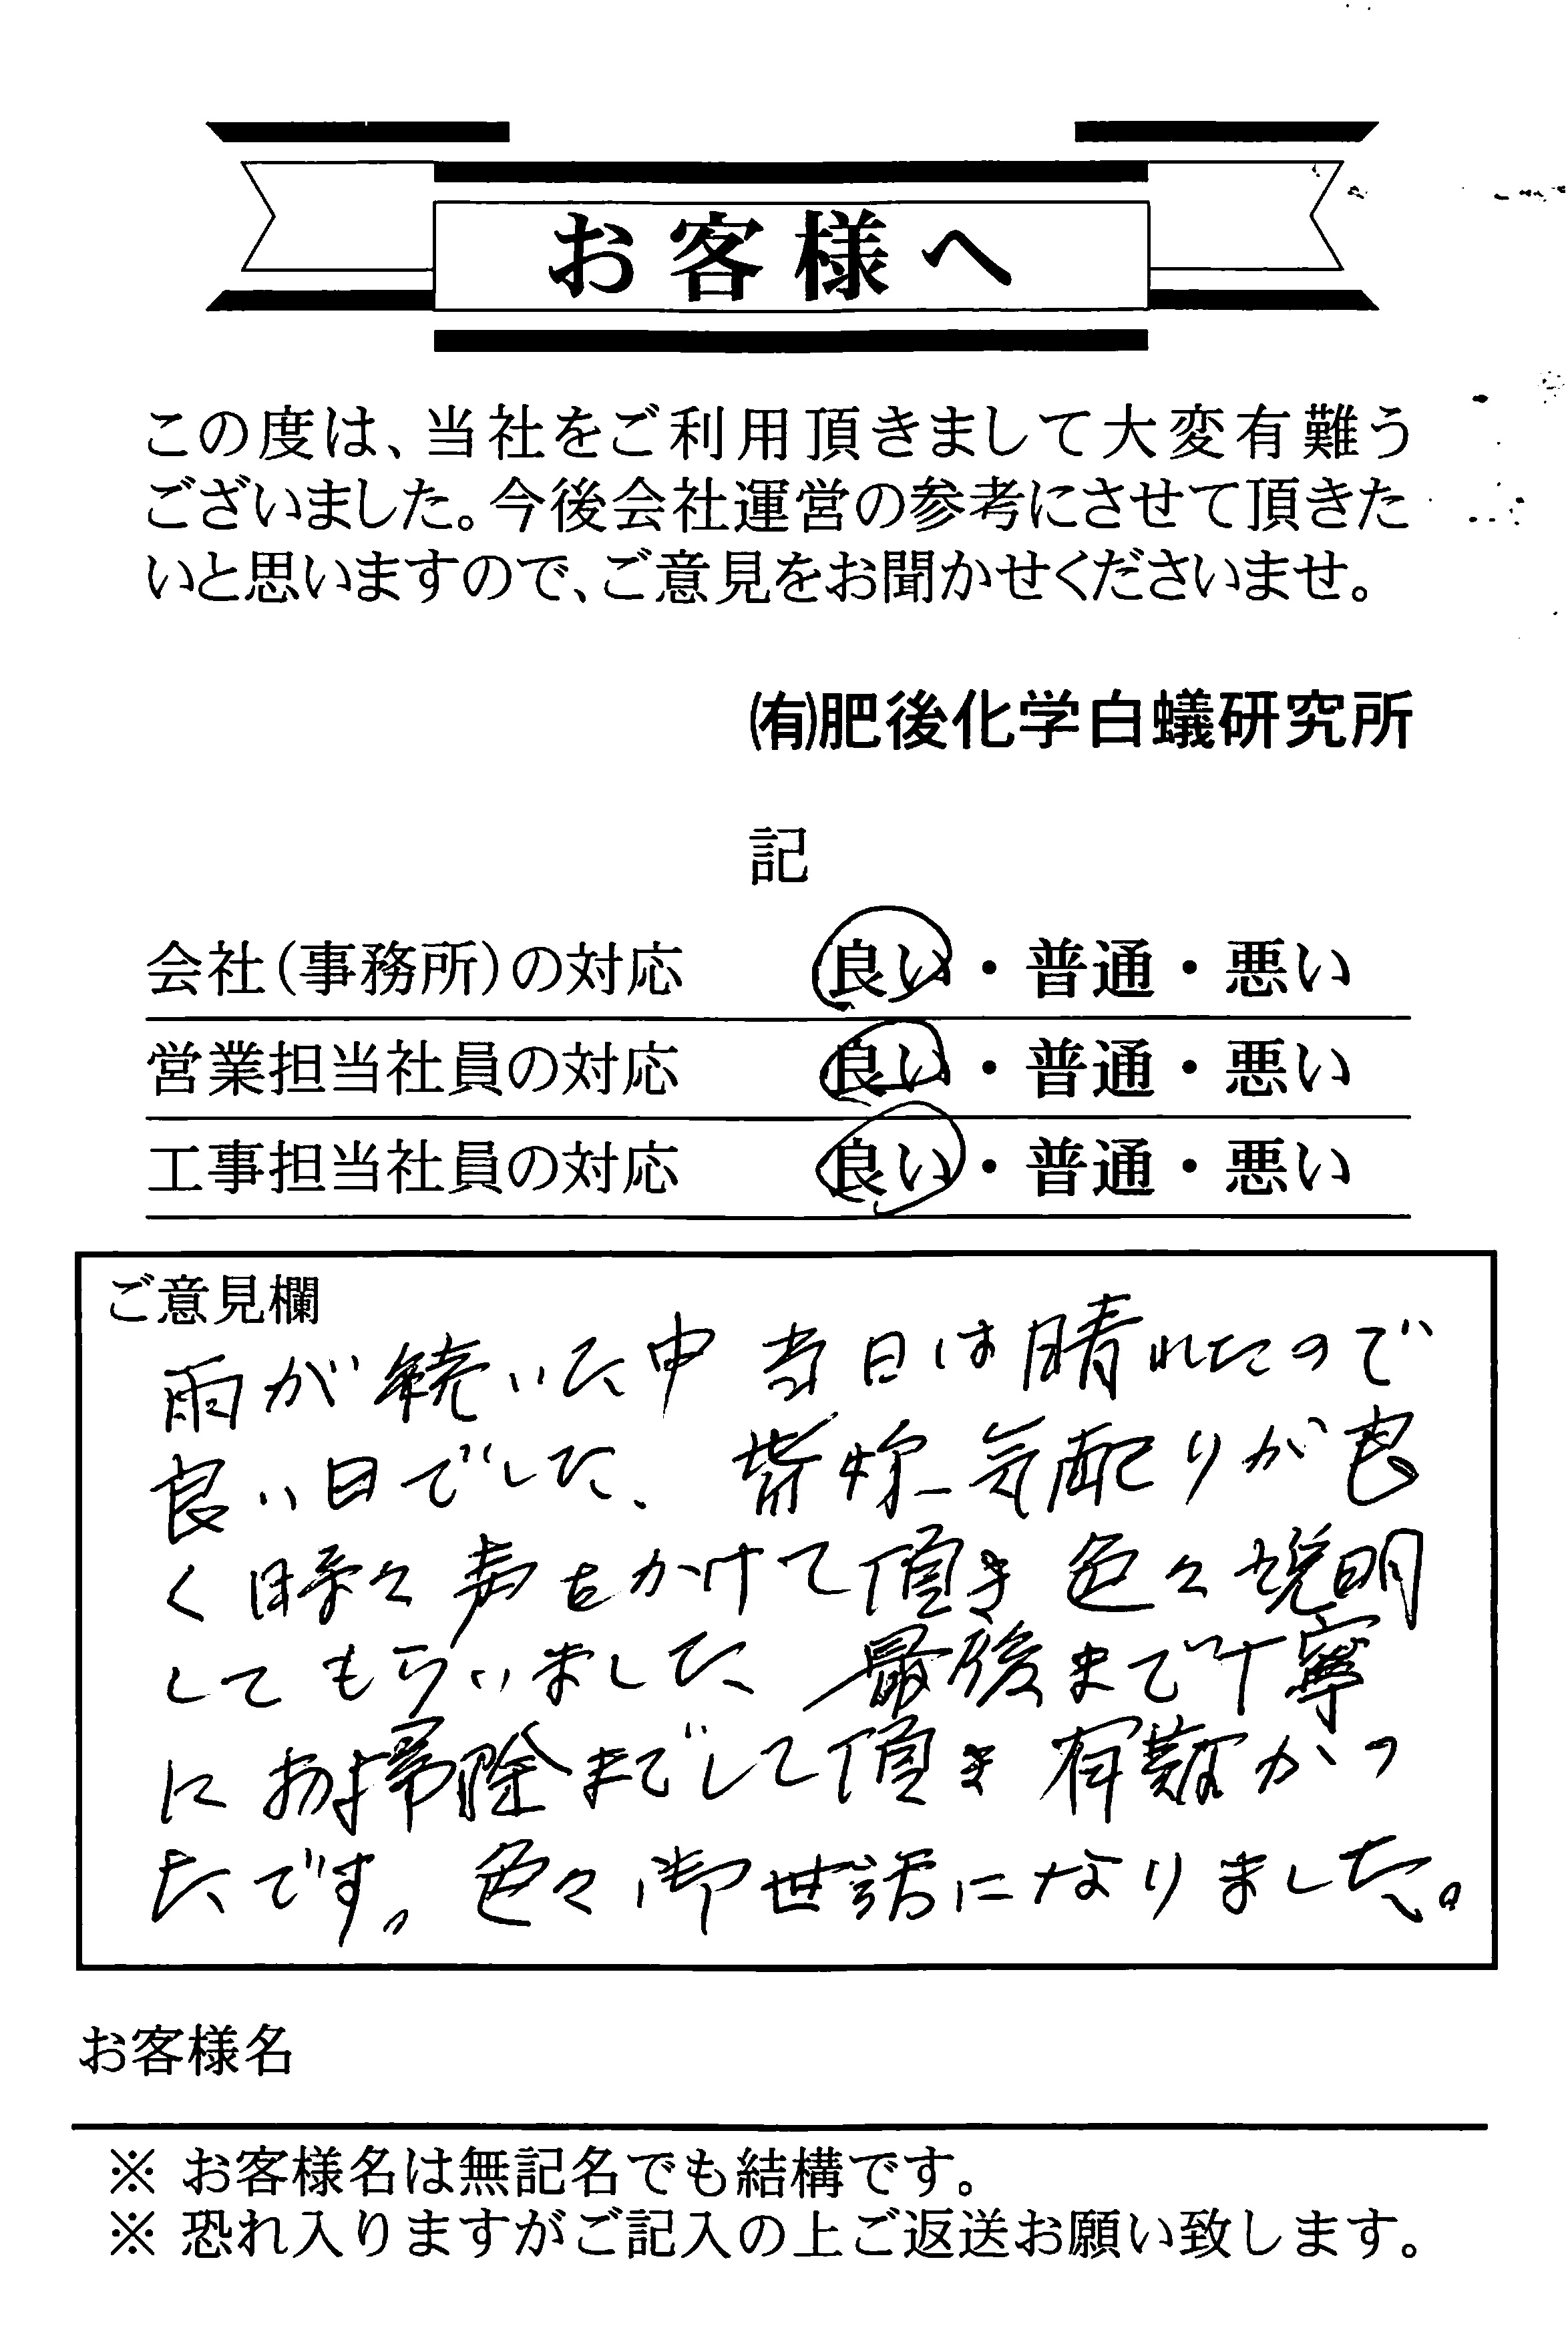 お客様へ
この度は、当社をご利用頂きまして大変有難う
ございました。今後会社運営の参考にさせて頂きた
いと思いますので、ご意見をお聞かせくださいませ。
㈲肥後化学白蟻研究所
記
会社(事務所)の対応 良い・普通・悪い
営業担当社員の対応 良い・普通・悪い
工事担当社員の対応 良い・普通・悪い
ご意見欄
雨が続いた中 当日は晴れたので
良い日でした、皆様気配りが良
く時々声をかけて頂き色々説明
してもらいました、最後まで丁寧
にお掃除までして頂き有難かっ
たです。色々御世話になりました。
お客様名
※ お客様名は無記名でも結構です。
※ 恐れ入りますがご記入の上ご返送お願い致します。